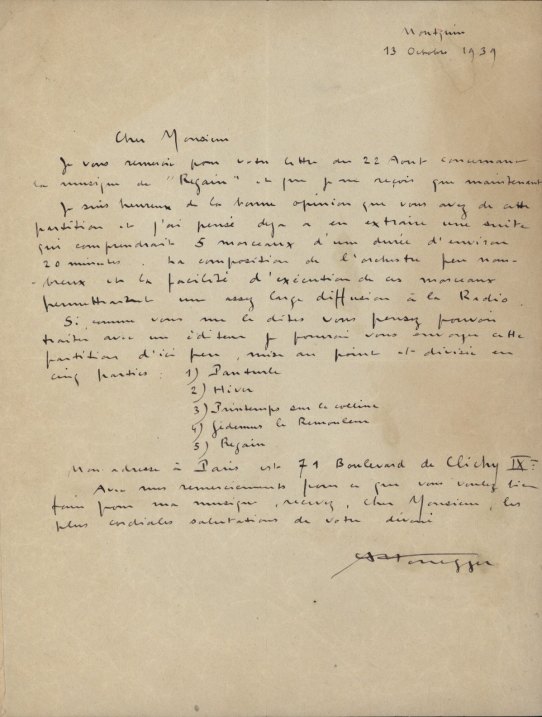 Montquin
13 Octobre 1939
Cher Monsieur
Je vous remercie pour votre lettre du 22 Aout concernant
la musique de "Regain" et que je ne reçois que maintenant
Je suis heureux de la bonne opinion que vous avez de cette
partition et j'ai pensé deja a en extraire une suite
qui comprendrait 5 morceaux d'une durée d'environ
20 minutes. La composition de l'orchestre peu nom-
-breux et la facilité d'exécution de ces morceaux
permettraient une assez large diffusion à la Radio.
Si, comme vous me le dites vous pensez pouvoir
traiter avec un éditeur je pourrai vous envoyer cette
partition d'ici peu, mise au point et divisée en
cinq parties: 1) Panturle
2) Hiver
3) Printemps sur la colline
4) Gédémus le Remouleur
5) Regain
Mon adresse à Paris est 71 Boulevard de Clichy IXe
Avec mes remerciements pour ce que vous voulez bien
faire pour ma musique, recevez, cher Monsieur, les
plus cordiales salutations de votre dévoué
AHonegger